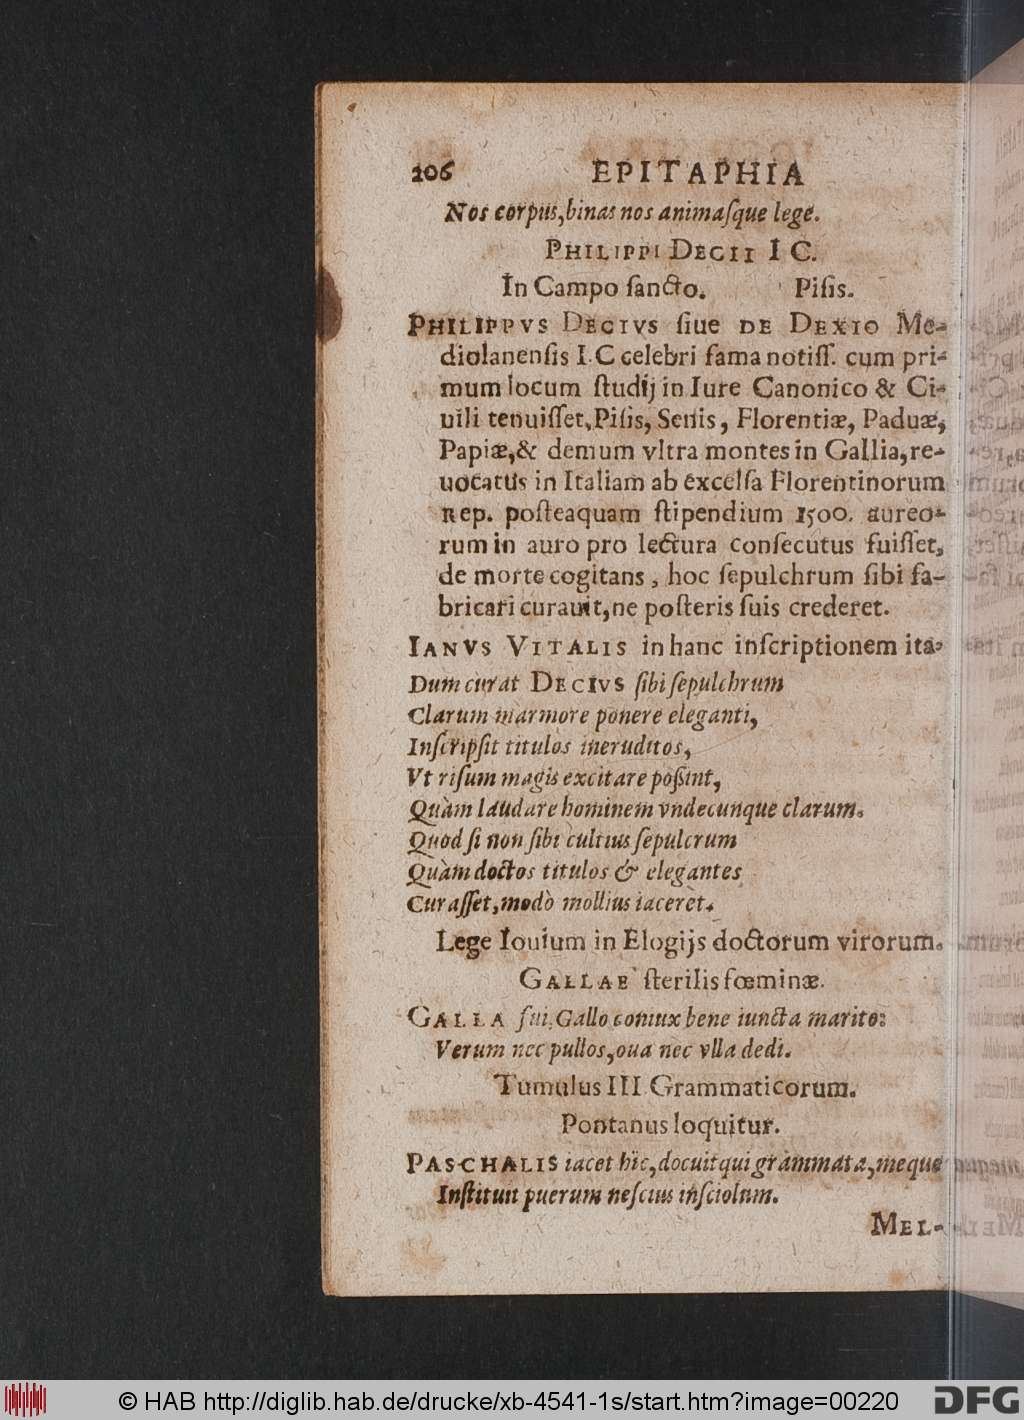 206 EPITAPHIA
Nos corpus, binas nos animasque lege.
PHILIPPI DECII I C.
In Campo sancto. Pisis.
PHILIPPVS DECIVS siue DE DEXIO Me-
diolanensis I.C celebri fama notiss. cum pri-
mum locum studij in Iure Canonico & Ci-
uili tenuisset, Pisis, Senis, Florentiæ, Paduæ,
Papiæ, & demum vltra montes in Gallia, re-
uocatus in Italiam ab excelsa Florentinorum
rep. posteaquam stipendium 1500. aureo-
rum in auro pro lectura consecutus fuisset,
de morte cogitans, hoc sepulchrum sibi fa-
bricari curauit, ne posteris suis crederet.
IANVS VITALIS in hanc inscriptionem ita:
Dum curat DECIVS sibi sepulchrum
Clarum marmore ponere eleganti,
Inscripsit titulos ineruditos,
Vt risum magis excitare possint,
Quàm laudare hominem vndecunque clarum.
Quod si non sibi cultius sepulcrum
Quàm doctos titulos & elegantes
Curasset, modò mollius iaceret.
Lege Iouium in Elogijs doctorum virorum.
GALLAE sterilis fœminæ.
GALLA fui, Gallo coniux bene iuncta marito:
Verum nec pullos, oua nec vlla dedi.
Tumulus III. Grammaticorum.
Pontanus loquitur.
PASCHALIS iacet hîc, docuit qui grammata, meque
Instituit puerum nescius insciolum.
MEL-
© HAB http://diglib.hab.de/drucke/xb-4541-1s/start.htm?image=00220
DFG